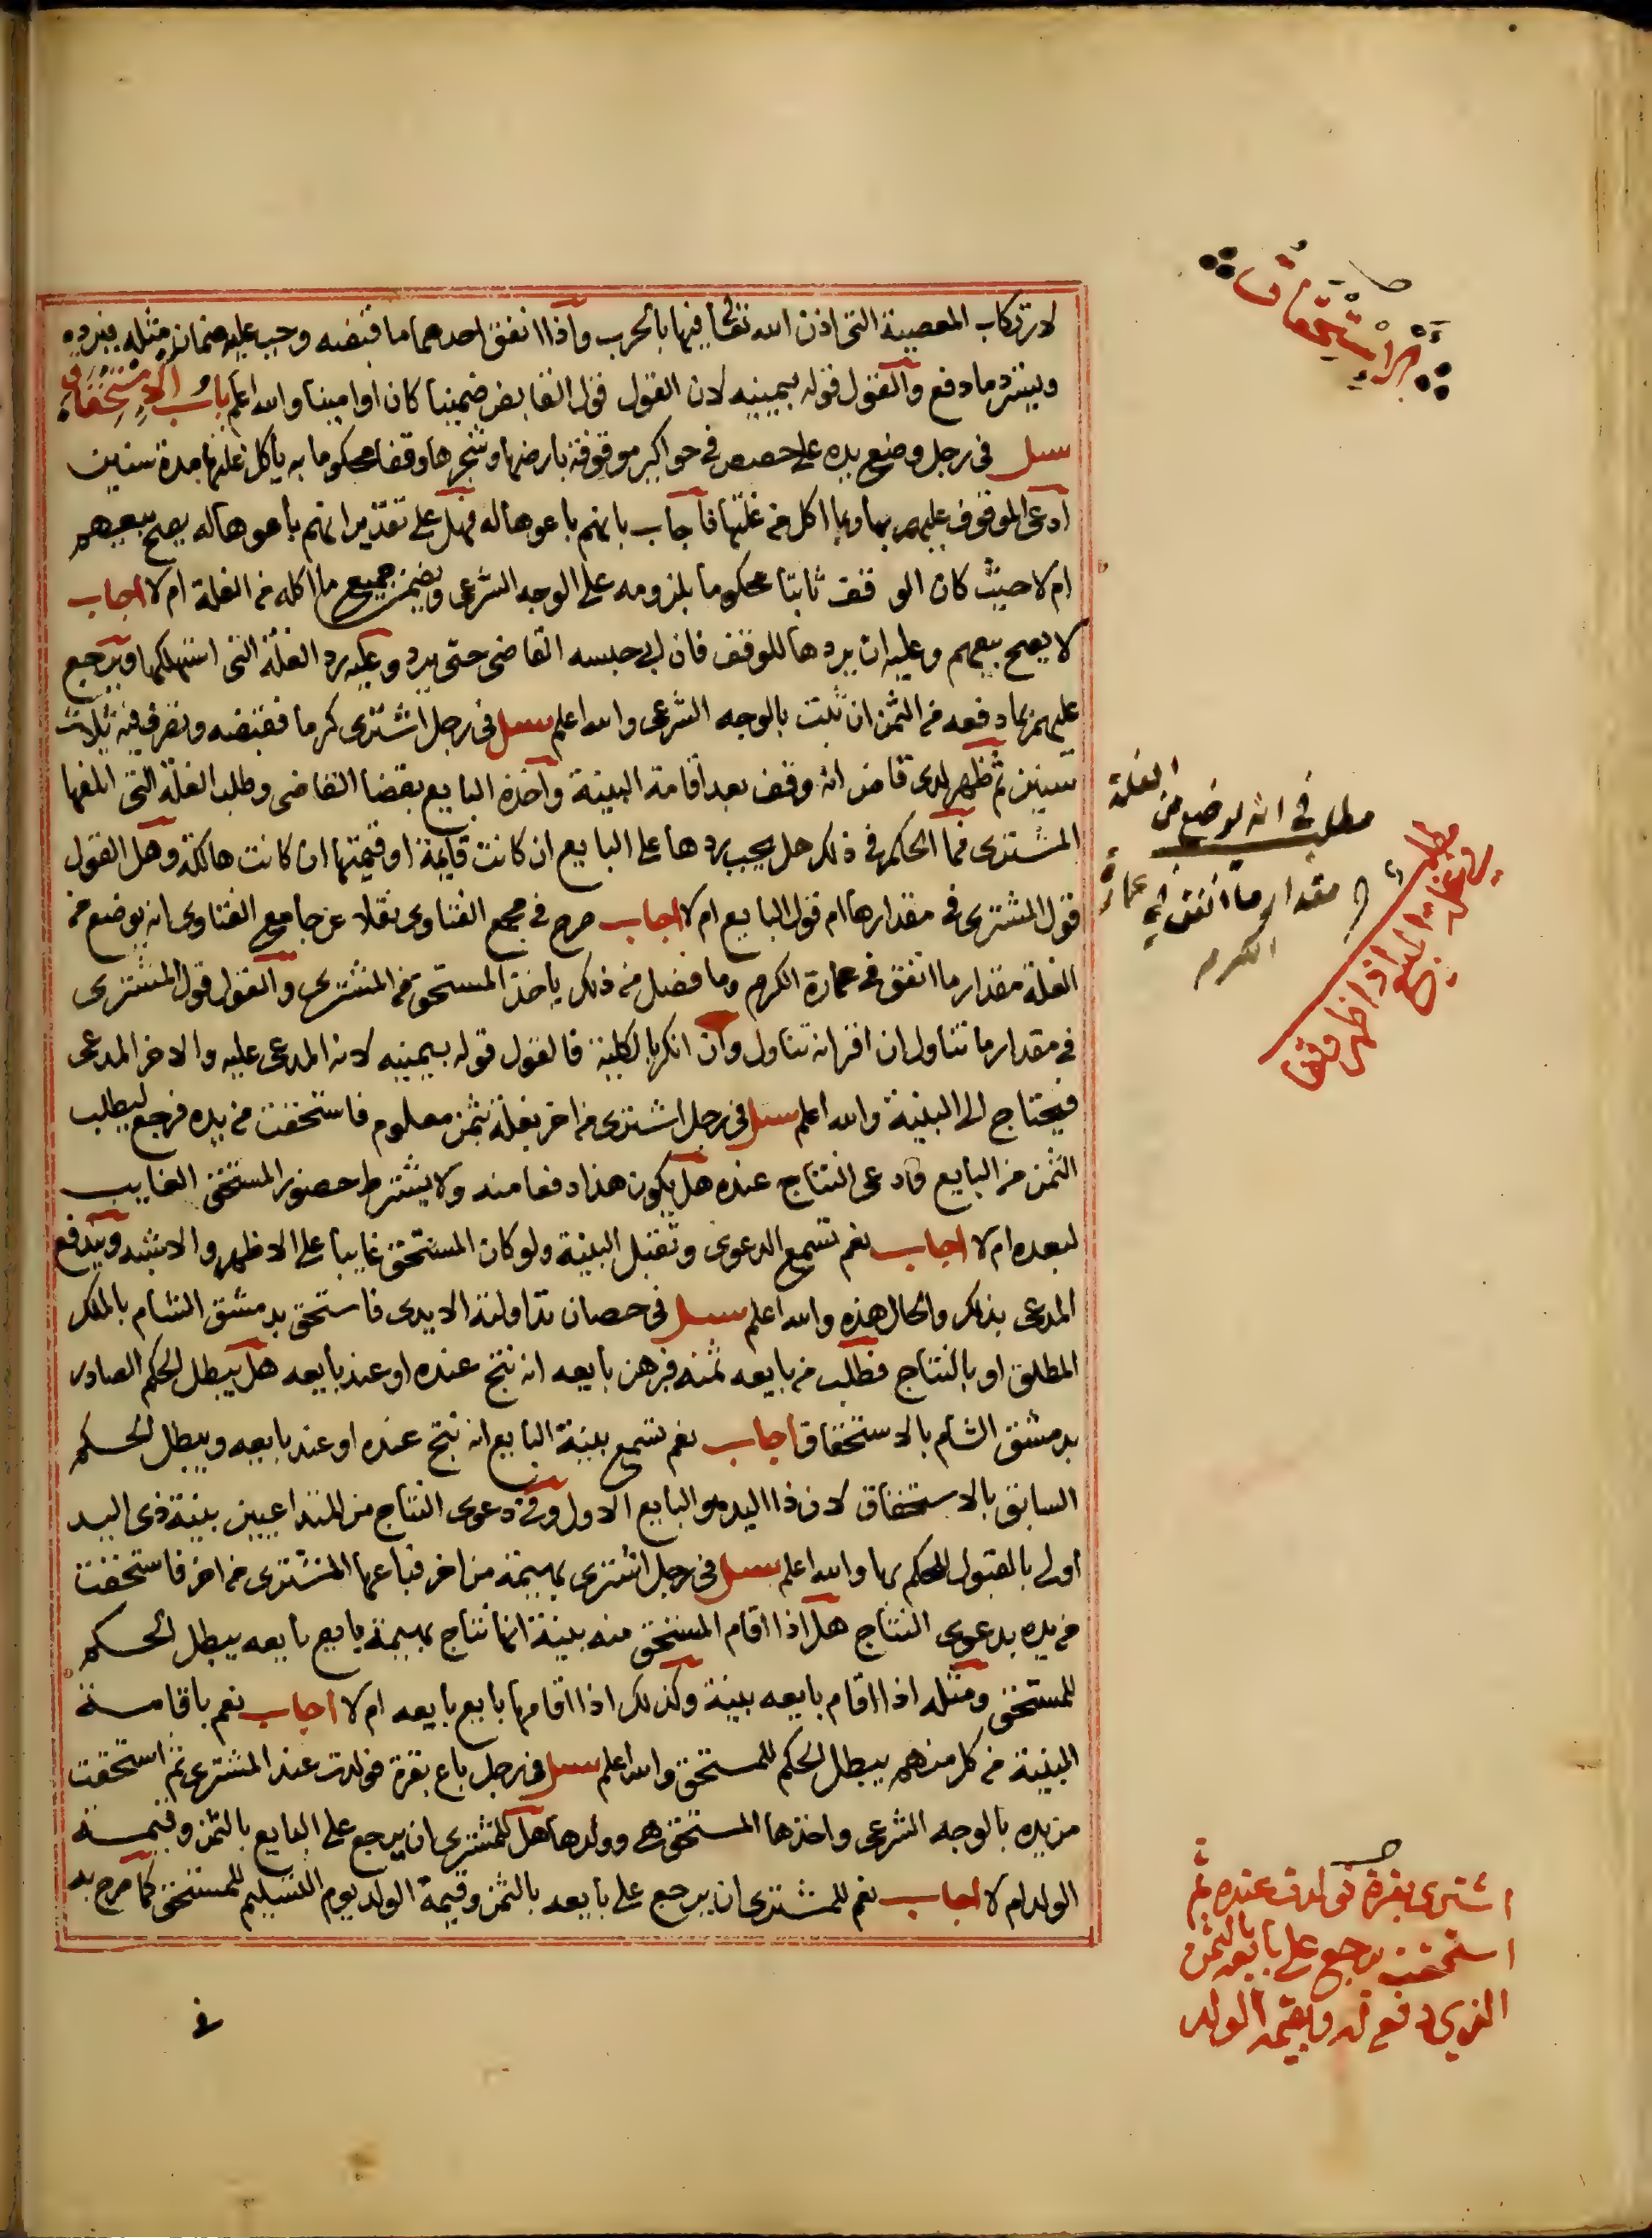 لارتكاب المعصية التى اذن الله تعالى فيها بالحرب واذا انفق احدهما ما قبضه وجب عليه ضمان مثله فيرده
ويسترد ما دفع والقول قوله بيمينه لان القول قول القابض ضمينا كان او امينا والله اعلم باب الاستحقاق
سئل فى رجل وضع يده على حصص فى حواكير موقوفة بارضها وشجرها وقفا محكوما به ياكل غلتها مدة سنين
ادعى الموقوف عليهم بها وبما اكل من غلتها فاجاب بانهم باعوها له فهل على تقدير انهم باعوها له يصح بيعهم
ام لا حيث كان الوقف ثابتا محكوما بلزومه على الوجه الشرعى ويضمن جميع ما اكله من الغلة ام لا اجاب
لا يصح بيعهم وعليه ان يردها للوقف فان ابى حبسه القاضى حتى يرد وعليه رد الغلة التى استهلكها ويرجع
عليهم بما دفعه من الثمن ان ثبت بالوجه الشرعى والله اعلم سئل فى رجل اشترى كرما فقبضه وتصرف فيه ثلاث
سنين ثم ظهر لدى قاض انه وقف بعد اقامة البينة واخذه البايع بقضا القاضى وطلب الغلة التى اتلفها
المشترى فما الحكم فى ذلك هل يجب ردها على البايع ان كانت قايمة او قيمتها ان كانت هالكة وهل القول
قول المشترى فى مقدارها ام قول البايع ام لا اجاب صرح فى مجمع الفتاوى نقلا عن جامع الفتاوى انه يوضع من
الغلة مقدار ما انفق فى عمارة الكرم وما فضل من ذلك ياخذ المستحق من المشترى والقول قول المشترى
فى مقدار ما تناول ان اقر انه تناول وان انكر بالكلية فالقول قوله بيمينه لانه المدعى عليه والاخر المدعى
فيحتاج الى البينة والله اعلم سئل فى رجل اشترى من اخر بغلة بثمن معلوم فاستحقت من يده فرجع ليطلب
الثمن من البايع فادعى النتاج عنده هل يكون هذا دفعا منه ولا يشترط حضور المستحق الغايب
لبعده ام لا اجاب نعم تسمع الدعوى وتقبل البينة ولو كان المستحق غايبا على الاظهر والاشبه ويندفع
المدعى بذلك والحال هذه والله اعلم سئل فى حصان تداولته الايدى فاستحق بدمشق الشام بالملك
المطلق او بالنتاج فطلب من بايعه ثمنه فبرهن بايعه انه نتج عنده او عند بايعه هل يبطل الحكم الصادر
بدمشق الشام بالاستحقاق اجاب نعم تسمع بينة البايع انه نتج عنده او عند بايعه ويبطل الحكم
السابق بالاستحقاق لان ذا اليد هو البايع الاول وفى دعوى النتاج من المتداعيين بينة ذى اليد
اولى بالقبول للحكم بها والله اعلم سئل فى رجل اشترى بهيمة من اخر فباعها المشترى من اخر فاستحقت
من يده بدعوى النتاج هل اذا اقام المستحق منه بينة انها نتاج بهيمة بايع بايعه يبطل الحكم
للمستحق ومثله اذا اقام بايعه بينة وكذلك اذا اقامها بايع بايعه ام لا اجاب نعم باقامة
البينة من كل منهم يبطل الحكم للمستحق والله اعلم سئل فى رجل باع بقرة فولدت عند المشترى ثم استحقت
من يده بالوجه الشرعى واخذها المستحق هى وولدها هل للمشترى ان يرجع على البايع بالثمن وقيمة
الولد ام لا اجاب نعم للمشترى ان يرجع على بايعه بالثمن وقيمة الولد يوم التسليم للمستحق كما صرح به
فى
الاستحقاق
مطلب فى انه يوضع من الغلة
مقدار ما انفق فى عمارة
الكرم
مطلب
البيع اذا ظهر وقفا
اشترى بقرة فولدت عنده ثم
استحقت يرجع على بايعه بالثمن
الذي دفع له وبقيمة الولد